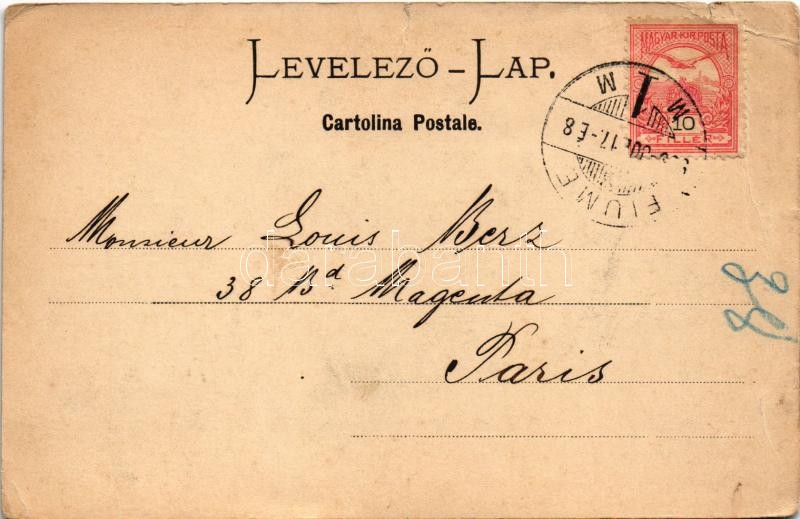 LEVELEZŐ – LAP.
Cartolina Postale.
MAGYAR KIR. POSTA
10
FILLÉR
FIUME
Monsieur Louis Berz
38 Bd Magenta
Paris
darabanth